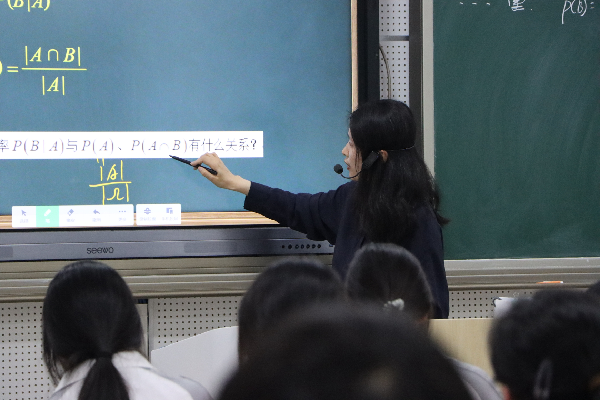 P(B|A)
= |A∩B| / |A|
率P(B|A)与P(A)、P(A∩B)有什么关系?
|A| / |Ω|
seewo
P(B)=